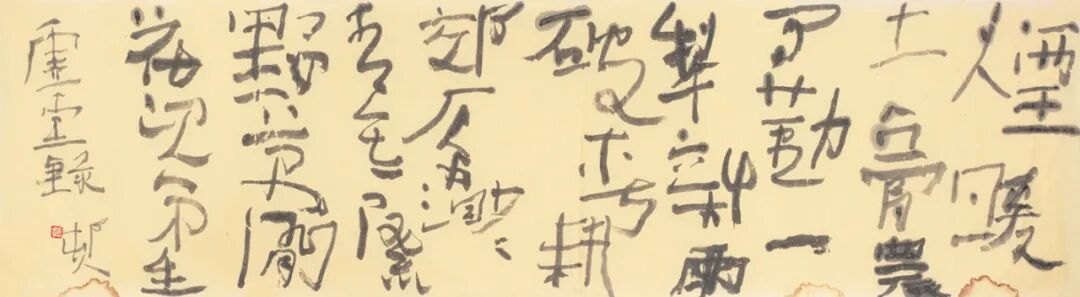 煙暖
土膏農
事動一
犁新雨
破春耕
郊原渺々
青無際
野草閑
花次第生
虛室錄
邨